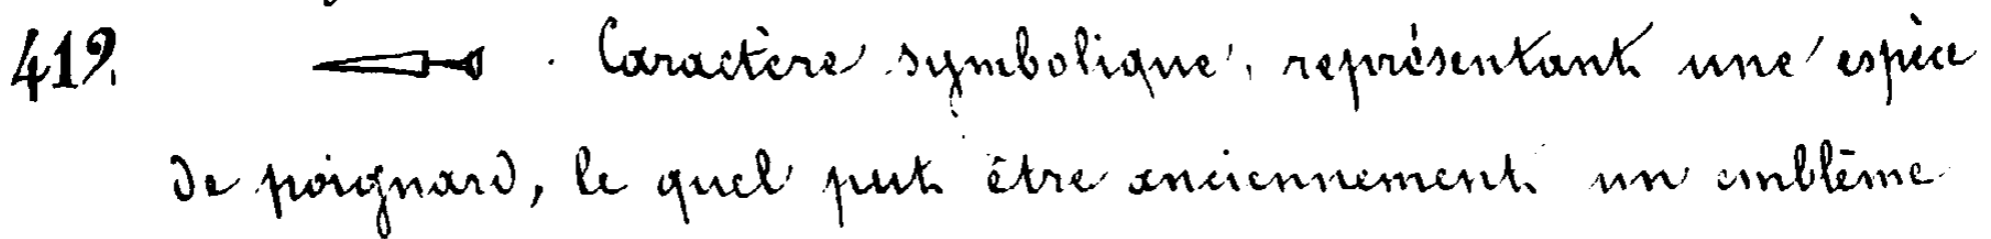 419. Caractère symbolique, représentant une espèce
de poignard, le quel put être anciennement un emblème